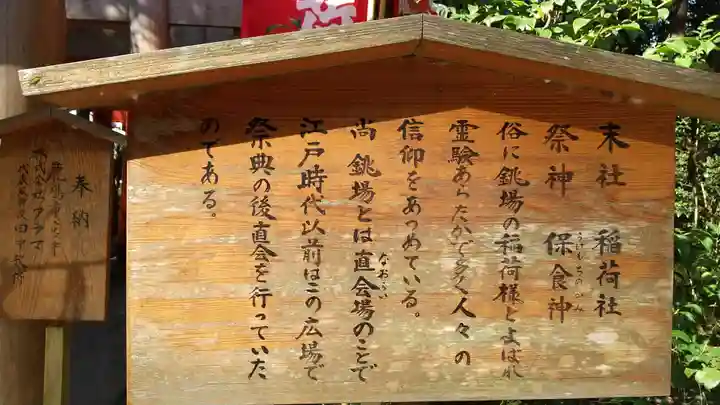 末社 稲荷社
祭神 保食神
うけもちのかみ
俗に銚場の稲荷様とよばれ
霊験あらたかで多く人々の
信仰をあつめている。
尚 銚場とは直会場のことで
なおらい
江戸時代以前はこの広場で
祭典の後直会を行っていた
のである。
奉納